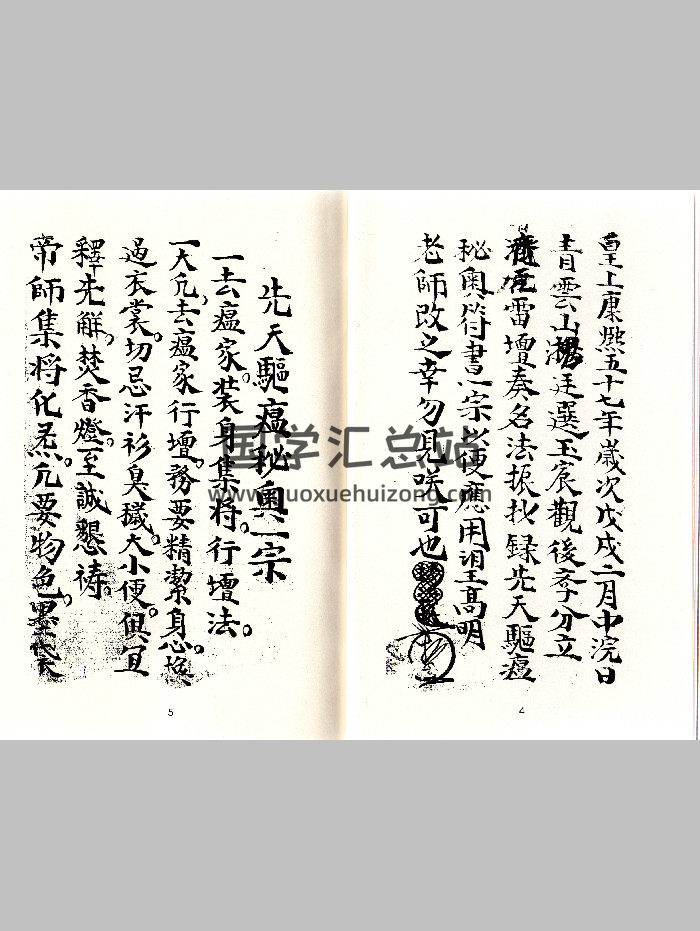 皇上康熙五十七年歲次戊戌二月中浣日
青雲山廷選玉宸觀後斈分立
雷壇奏名法振抄錄先天驅瘟
秘奧符書一宗以便應用望高明
老師改之幸勿見咲可也
4
先天驅瘟秘奧一宗
一去瘟家裝身集將。行壇法。
一大凢去瘟家行壇。務要精潔身心。換
過衣裳。切忌汗衫臭穢。大小便。俱宜
釋先解。焚香燈。至誠懇禱。
帝師集將化炁。凢要物色。墨
5
国学汇总站
www.guoxuehuizong.com